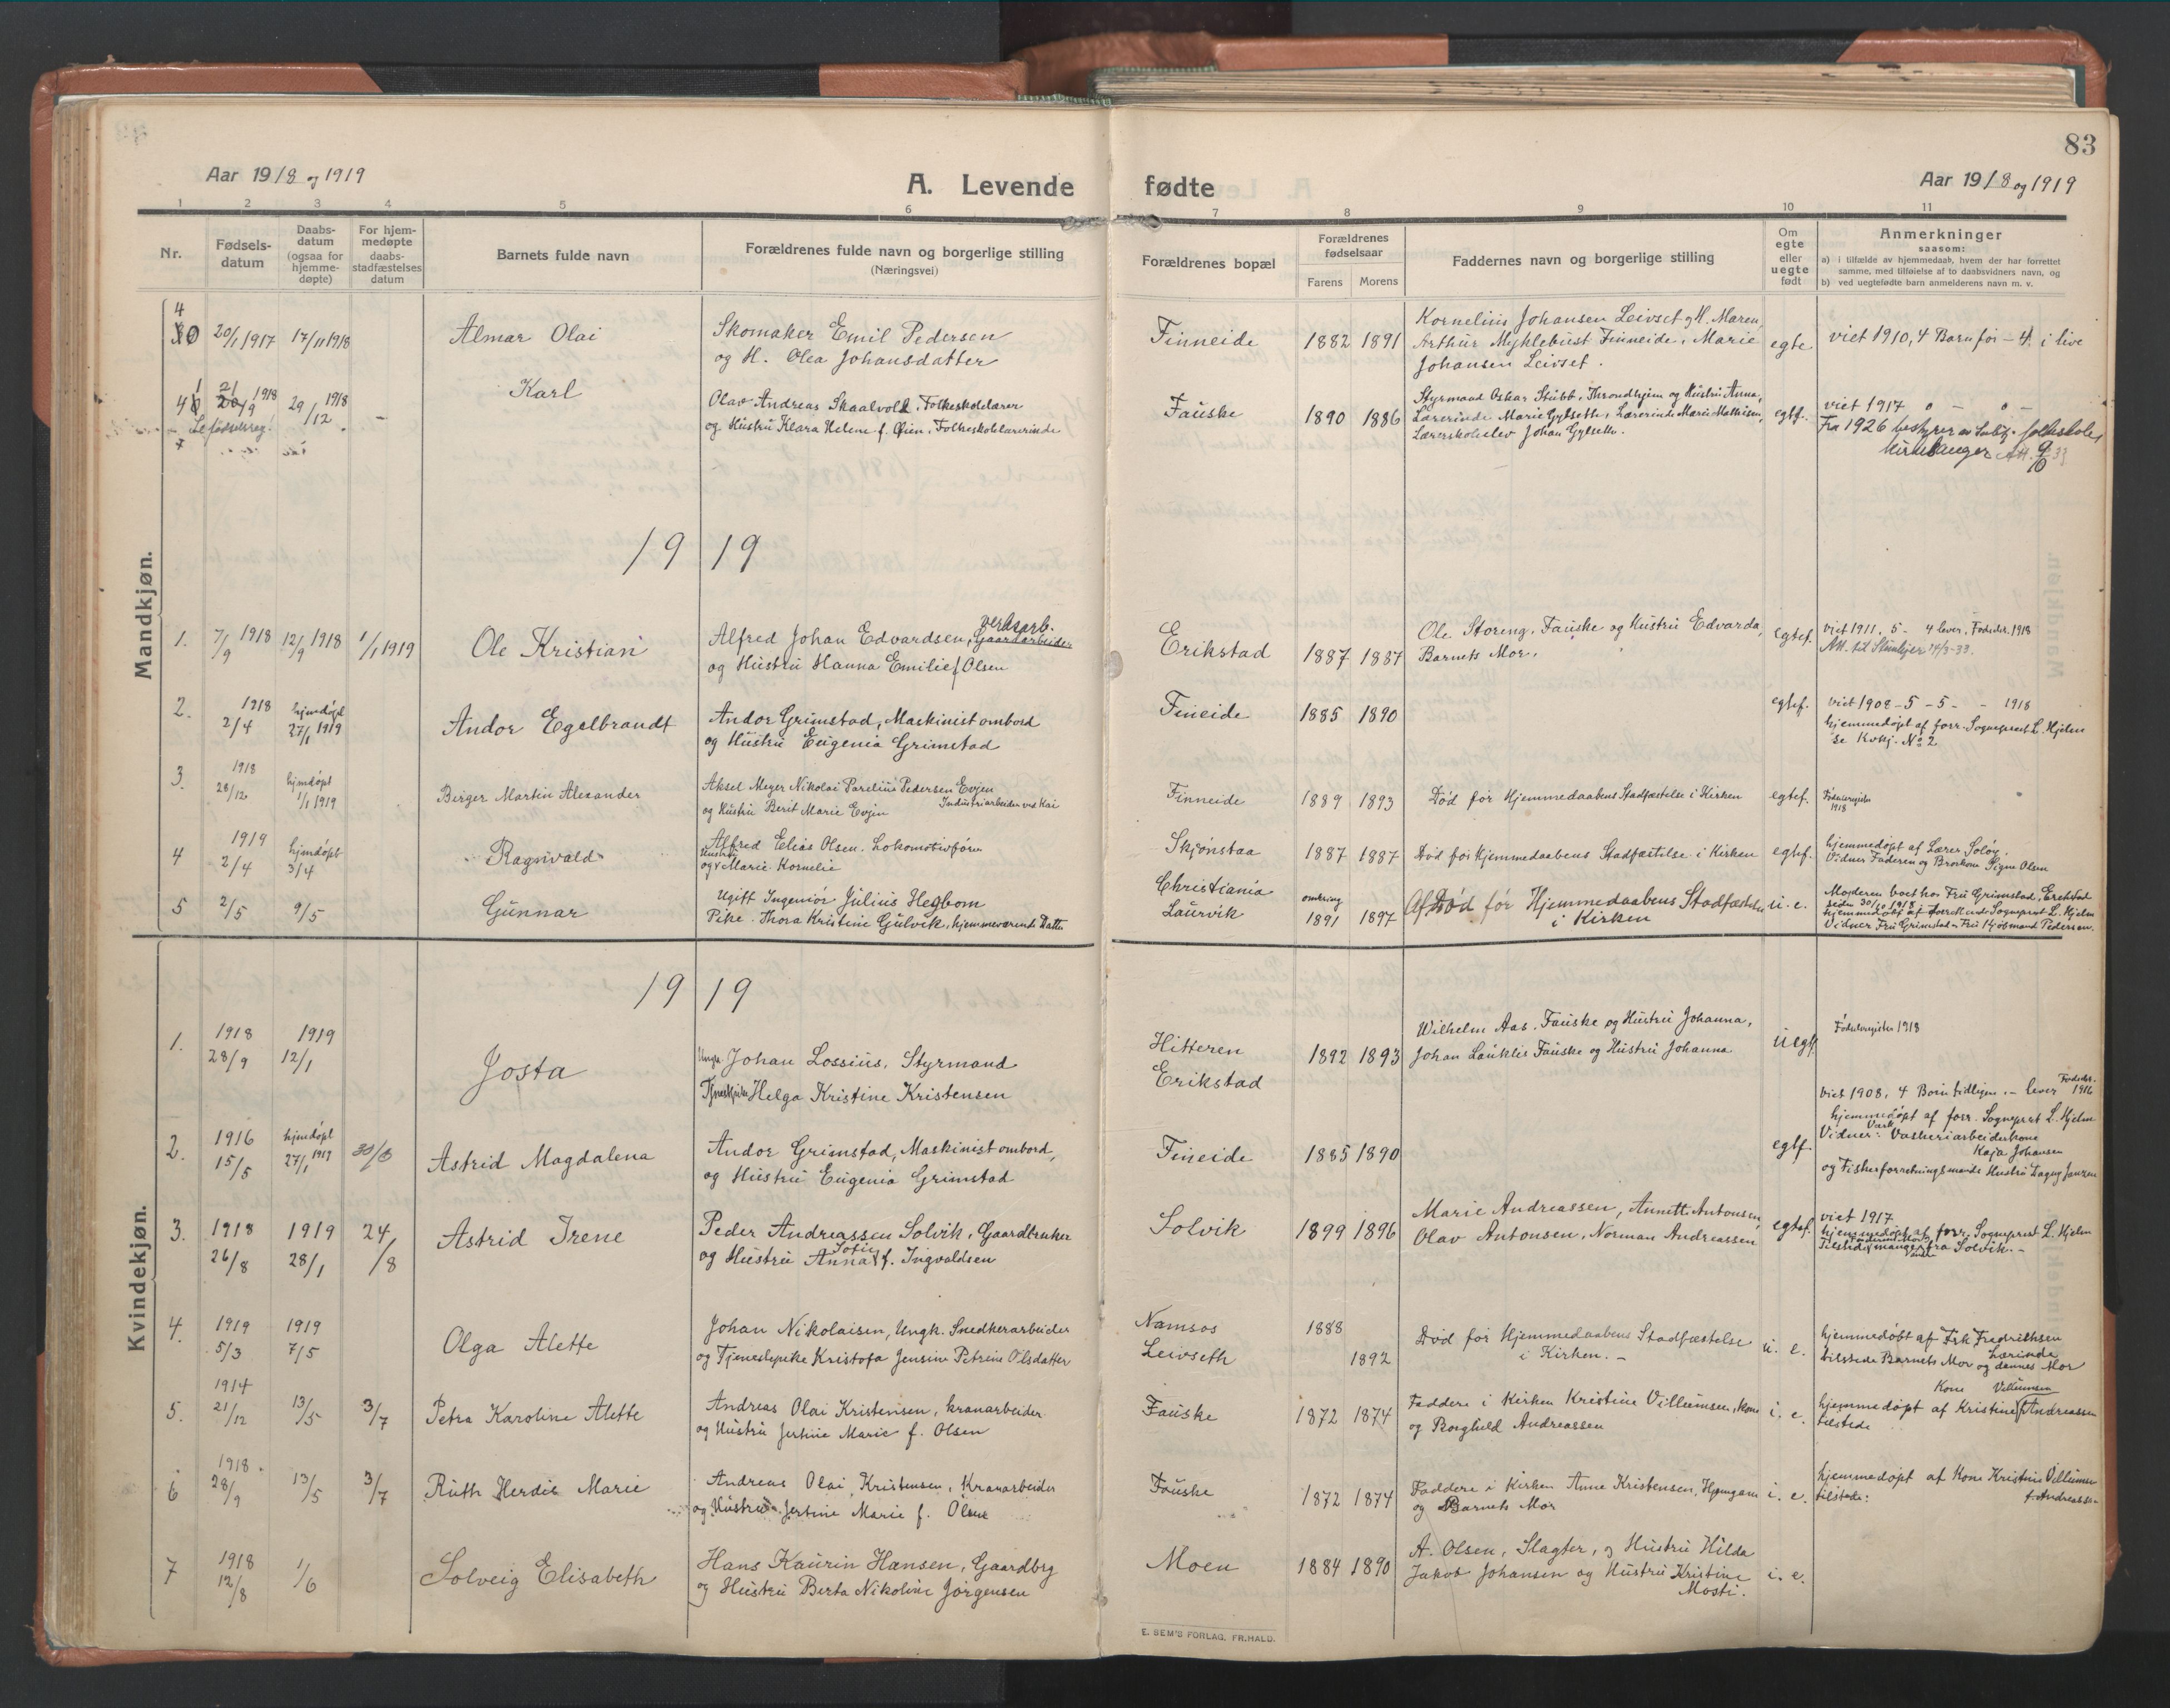 83
Aar 1918 og 1919
A. Levende fødte
Aar 1918 og 1919
1 2 3 4 5 6 7 8 9 10 11
Nr.
Fødsels-
datum
Daabs-
datum
(ogsaa for
hjemme-
døpte)
For hjem-
medøpte
daabs-
stadfæstelses
datum
Barnets fulde navn
Forældrenes fulde navn og borgerlige stilling
(Næringsvei)
Forældrenes bopæl
Forældrenes
fødselsaar
Farens Morens
Faddernes navn og borgerlige stilling
Om
egte
eller
uegte
født
Anmerkninger
saasom:
a) i tilfælde av hjemmedaab, hvem der har forrettet
samme, med tilføielse af to daabsvidners navn, og
b) ved uegtefødte barn anmelderens navn m. v.
Mandkjøn.
40 20/1 1917 17/11 1918
Almar Olai
Skomaker Emil Pedersen
og H. Olea Johansdatter
Finneide
1882 1891
Kornelius Johansen Leivset og H. Maren,
Arthur Myklebust Finneide, Marie
Johansen Leivset.
egte
viet 1910, 4 Barn før – 4 i live
41 21/9 1918 29/12 1918 –
Se fødselsreg!
Karl
Olav Andreas Skaalvold, Folkeskolelærer
og Hustru Klara Helene f. Øien, Folkeskolelærerinde
Fauske
1890 1886
Styrmand Oskar Stubb, Throndhjem og Hustru Anna,
Lærerinde Marie Gylseth, Lærerinde Marie Mathisen,
Lærerskoleelev Johan Gylseth.
egtf.
viet 1917 o – o –
Fra 1926 bestyrer av folkeskole
1919
1. 7/9 1918 12/9 1918 1/1 1919
Ole Kristian
verksarb.
Alfred Johan Edvardsen, Gaardarbeider
og Hustru Hanna Emilie f Olsen
Erikstad
1887 1887
Ole Storeng, Fauske og Hustru Edvarda,
Barnets Mor.
egtef.
viet 1911. 5 – 4 lever. Fødselsr. 1918
Att. til Steinkjer 14/3-33.
2. 1918 2/4 hjemdøpt 27/1 1919
Andor Egelbrandt
Andor Grimstad, Maskinist ombord
og Hustru Eugenia Grimstad
Fineide
1885 1890
egtef.
viet 1908 – 5 – 5 – – 1918
hjemmedøpt af forr. Sogneprest L. Hjelm
se Kvkj. No 2
3. 1918 28/12 hjemdøpt 1/1 1919
Birger Martin Alexander
Aksel Meyer Nikolai Parelius Pedersen Evjen
Industriarbeider ved Kai
og Hustru Berit Marie Evjen
Finneide
1889 1893
Død før Hjemmedaabens Stadfæstelse i Kirken
egtef.
Fødselsregister
1918
4 1919 2/4 hjemdøpt 3/4
Ragnvald
Alfred Elias Olsen. Lokomotivfører
og Hustru Marie Kornelie
Skjønstaa
1887 1887
Død før Hjemmedaabens Stadfæstelse i Kirken
egtef.
hjemmedøpt af Lærer Soløy.
Vidner Faderen og Signe Olsen
5 2/5 9/5
Gunnar
Ugift Ingeniør Julius Hegbom
Pike Thora Kristine Gulvik, hjemmeværende Datter
Christiania
Laurvik
omkring
1891 1897
Død før Hjemmedaabens Stadfæstelse
i Kirken
u. e.
Moderen boet hos Fru Grimstad, Erikstad
siden 30/10 1918
hjemmedøbt af forrettende Sogneprest L. Hjelm
Vidner Fru Grimstad og Fru Pedersen.
Kvindekjøn.
1919
1. 1918 28/9 1919 12/1
Josta
Ungk. Johan Lossius, Styrmand
Tjenestepike Helga Kristine Kristensen
Hitteren
Erikstad
1892 1893
Wilhelm Aas, Fauske og Hustru Johanna,
Johan Lauklie Fauske og Hustru Johanna
uegtf.
Fødselsregister 1918
2. 1916 15/5 hjemdøpt 27/1 1919 30/6
Astrid Magdalena
Andor Grimstad, Maskinist ombord,
og Hustru Eugenia Grimstad
Fineide
1885 1890
egtf.
viet 1908, 4 Børn tidligere. – lever Fødselsr. 1916
hjemmedøpt af forr. Sogneprest L. Hjelm
Vidner: Vaskeriarbeiderkone
Kaja Johansen
og Fiskeforretningsmands Hustru Dagny Jansen
3. 1918 26/8 1919 28/1 24/8
Astrid Irene
Peder Andreassen Solvik, Gaardbruker
og Hustru Anna Sofie f. Ingvaldsen
Solvik
1899 1896
Marie Andreassen, Annette Antonsen,
Olav Antonsen, Norman Andreassen
egtef.
viet 1917
hjemmedøpt af forr. Sogneprest L. Hjelm
Tilstede mange fra Solvik. –
4. 1919 5/3 1919 7/5
Olga Alette
Johan Nikolaisen, Ungk. Snedkerarbeider
og Tjenestepike Kristofa Jensine Petrine Olsdatter
Namsos
Leivseth
1888
1892
Død før Hjemmedaabens Stadfæstelse
i Kirken. –
u. e.
hjemmedøbt af Frk Fredriksen
Lærerinde
tilstede Barnets Mor og dennes Mor
5. 1914 21/12 13/5 3/7
Petra Karoline Alette
Andreas Olai Kristensen, kranarbeider
og Hustru Jertine Marie f. Olsen
Fauske
1872 1874
Faddere i Kirken Kristine Villumsen, kone
og Borghild Andreassen
i. e.
Kone Villumsen
hjemmedøpt af Kristine f Andreassen
tilstede
6 1918. 28/9 13/5 3/7
Ruth Herdis Marie
Andreas Olai Kristensen, Kranarbeider
og Hustru Jertine Marie f. Olsen
Fauske
1872 1874
Faddere i Kirken Anne Kristensen, Hjemgam
og Barnets Mor
i. e.
hjemmedøpt af Kone Kristine Villumsen
f. Andreassen
tilstede:
7 1918 12/8 1/6
Solveig Elisabeth
Hans Kaurin Hansen, Gaardbrg
og Hustru Berta Nikoline Jørgensen
Moen
1884 1890
A. Olsen, Slagter, og Hustru Hilda
Jakob Johansen og Hustru Kristine
Mosti.
i. e.
E. SEM'S FORLAG, FR.HALD.